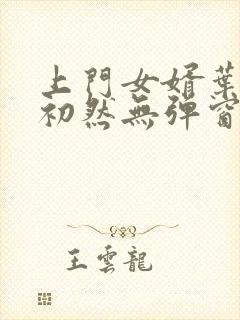 上門女婿葉
初然無彈窗
王雲龍